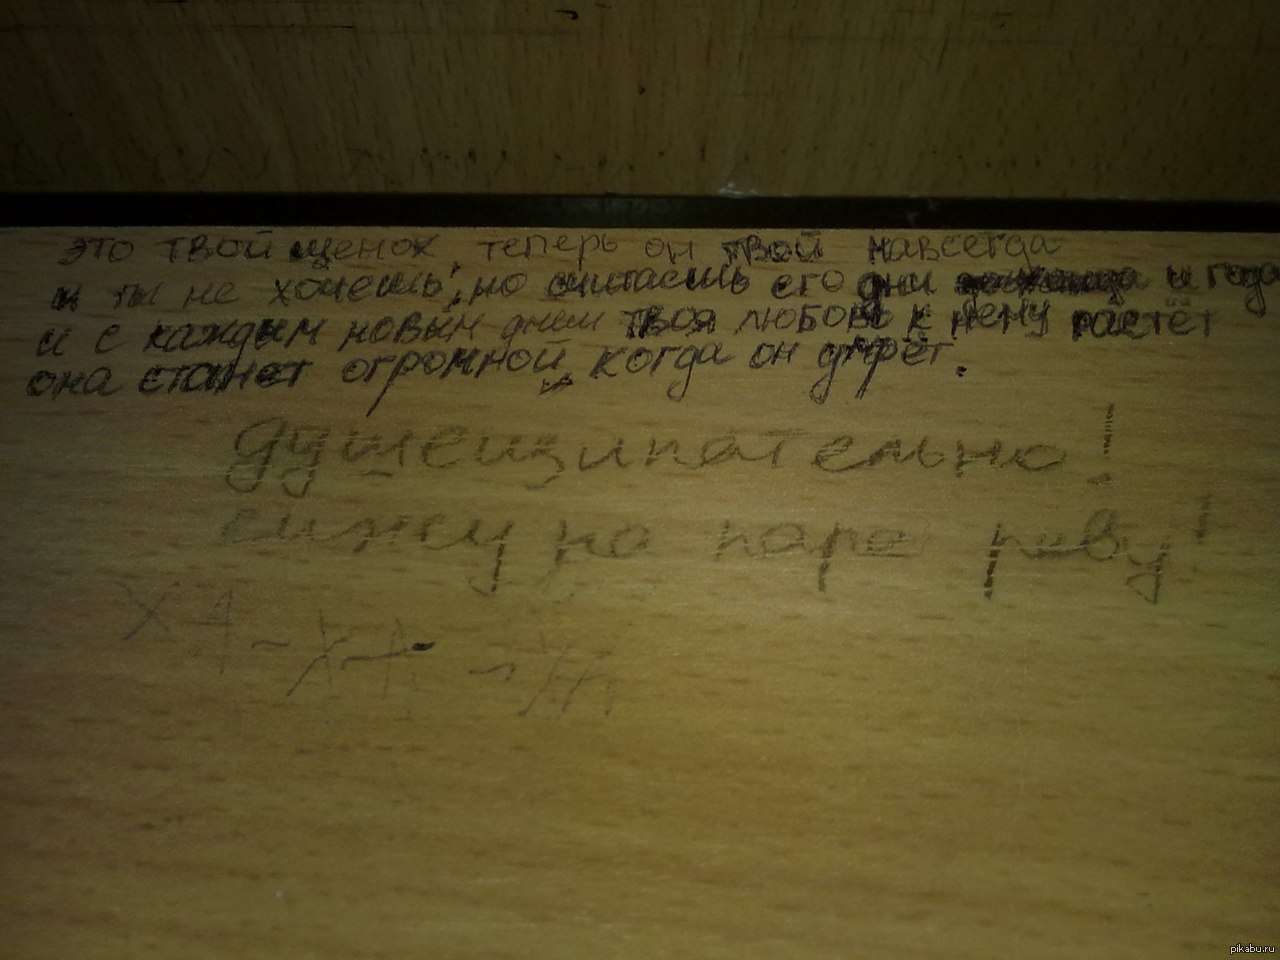 это твой щенок, теперь он твой навсегда
и ты не хочешь, но считаешь его дни и года
и с каждым новым днем твоя любовь к нему растёт
она станет огромной, когда он умрёт.
душещипательно!
сижу на паре реву!
ХА-ХА-ХА
pikabu.ru